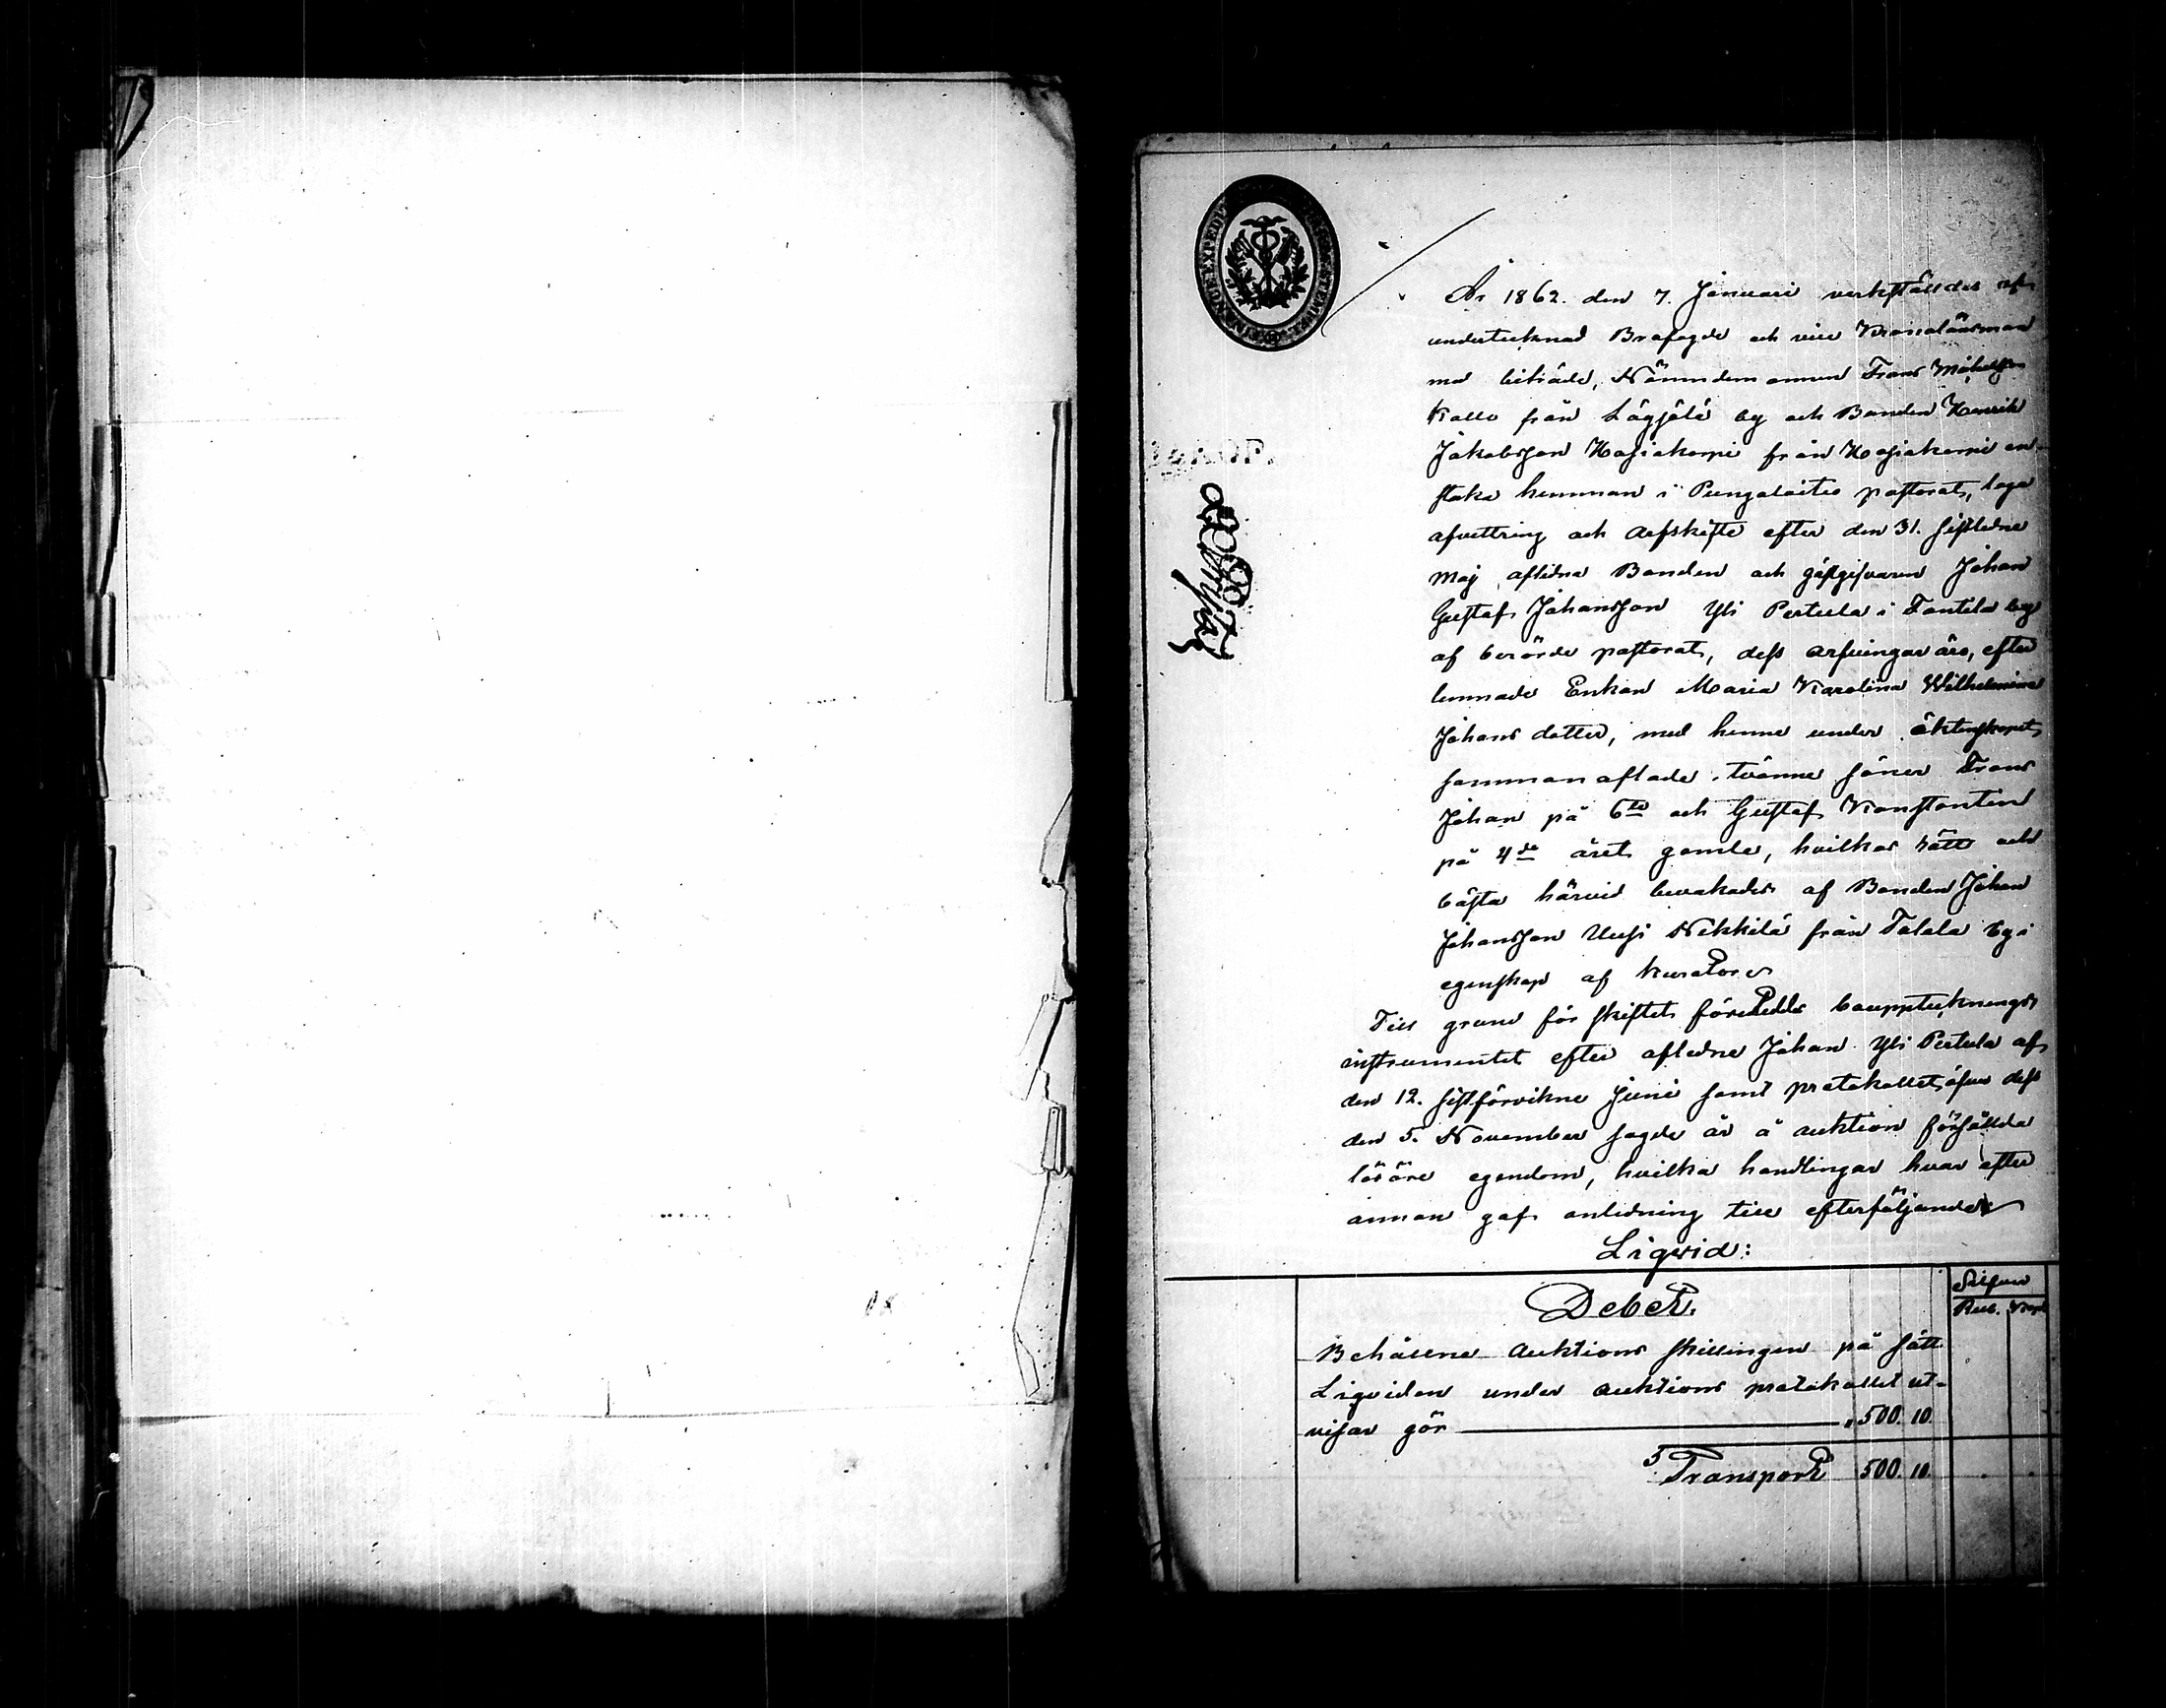 År 1862. den 7. Januari verkställdes af
undertecknad Brofogde och vice Kronolänsman
med biträde, Nämndemannen Frans Mickelsson
Kallo från Lågjälä by och Bonden Henrik
Jakobsson Hasiakorpi från Hasiakorpi en-
staka hemman i Pungalaitio pastorat, laga
afvittring och Arfskifte efter den 31. sistledne
Maj aflidna Bonden och gästgifvaren Johan
Gustaf Johansson Yli Pertula i Tontila by
af berörde pastorat, dess arfvingar äro, efter
lemnade Enkan Maria Karolina Wilhelmina
Johans dotter, med henne under äktenskapet
sammanaflade tvänne söner Frans
Johan på 6te och Gustaf Konstantin
på 4de året gamle, hvilkas rätt och
bästa härvid bevakades af Bonden Johan
Johansson Uusi Nekkilä från Talala by i
egenskap af kurator
Till grund för skiftet företeddes bouppteknings
instrumentet efter aflidne Johan Yli Pertula af
den 12. sistförvikne Juni samt protokollet öfver dess
den 5. November sagde år å auktion försållda
lösöre egendom, hvilka handlingar hvar efter
annan gaf anledning till efterföljande
Liqvid:
Debet.
Silfver
Rub. Kop.
Behållne Auktions skillingen på sätt
Liqviden under auktions protokollet ut-
visar gör 500. 10.
Transport 500. 10.